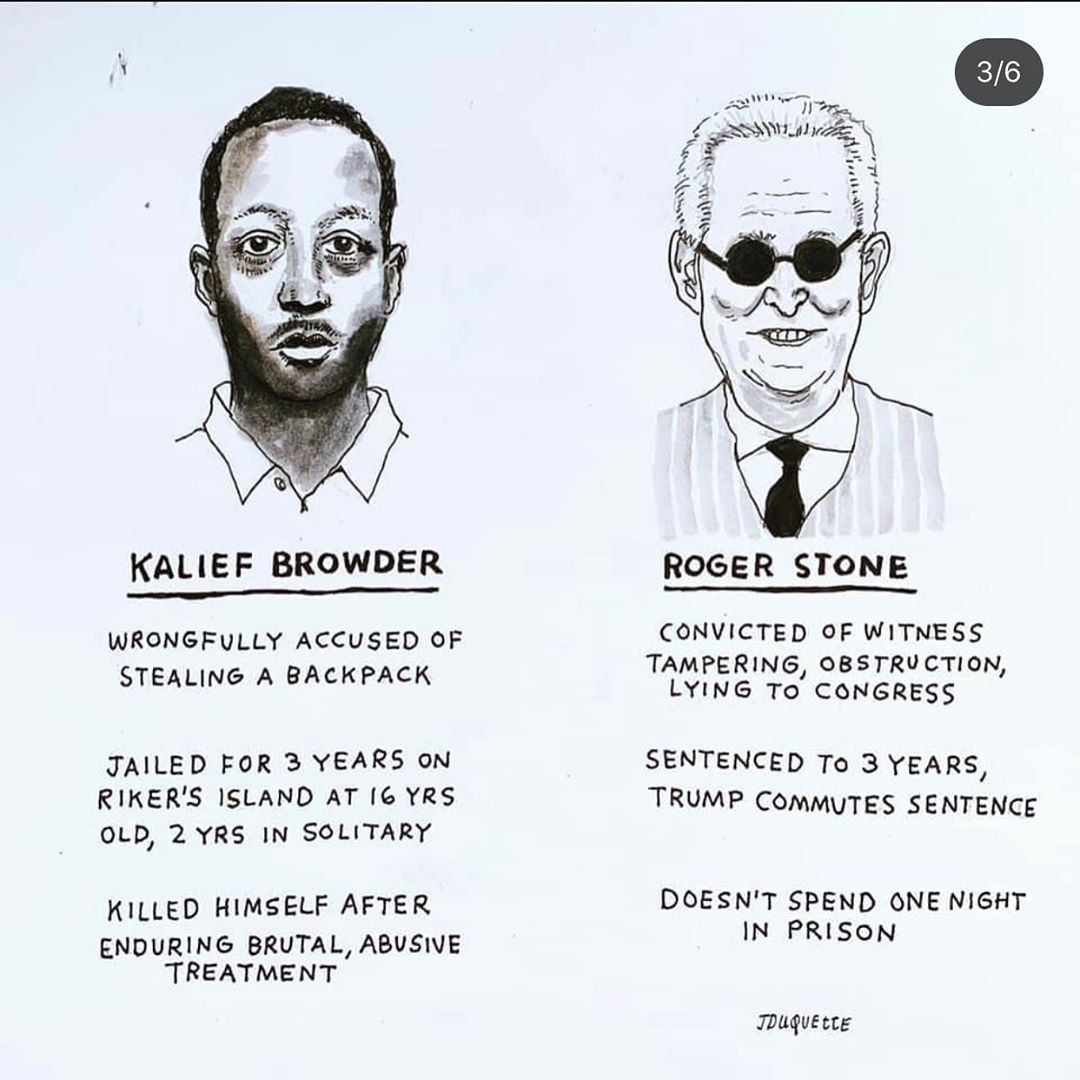 3/6
KALIEF BROWDER
WRONGFULLY ACCUSED OF
STEALING A BACKPACK
JAILED FOR 3 YEARS ON
RIKER'S ISLAND AT 16 YRS
OLD, 2 YRS IN SOLITARY
KILLED HIMSELF AFTER
ENDURING BRUTAL, ABUSIVE
TREATMENT
ROGER STONE
CONVICTED OF WITNESS
TAMPERING, OBSTRUCTION,
LYING TO CONGRESS
SENTENCED TO 3 YEARS,
TRUMP COMMUTES SENTENCE
DOESN'T SPEND ONE NIGHT
IN PRISON
JDUQUETTE